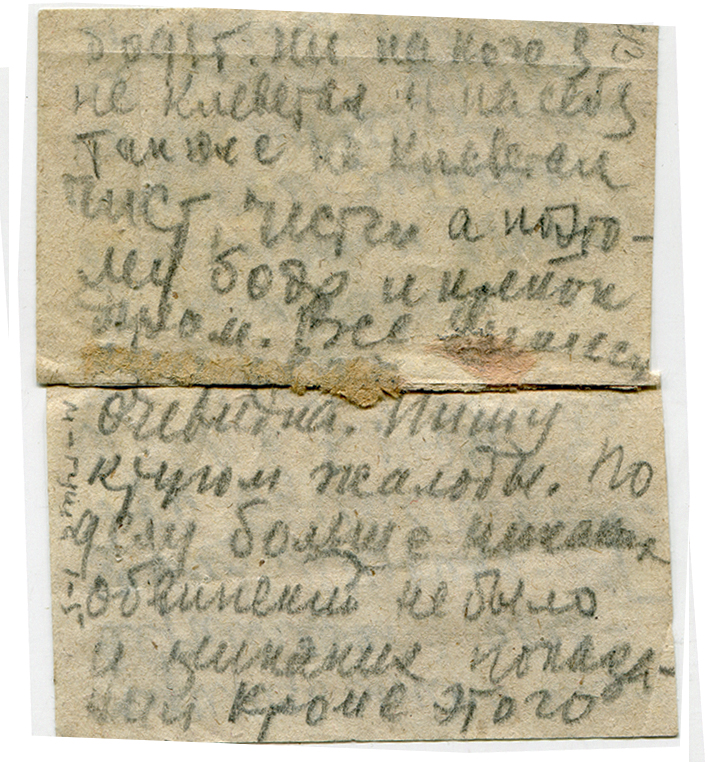 дят. Ни на кого я
не клеветал и на себя
также не клеветал
чист, честен а поэто-
му бодр и крепок
Все
очевидна. Пишу
кругом жалобы. По
делу больше никаких
обвинений не было
и никаких показа-
ний кроме этого